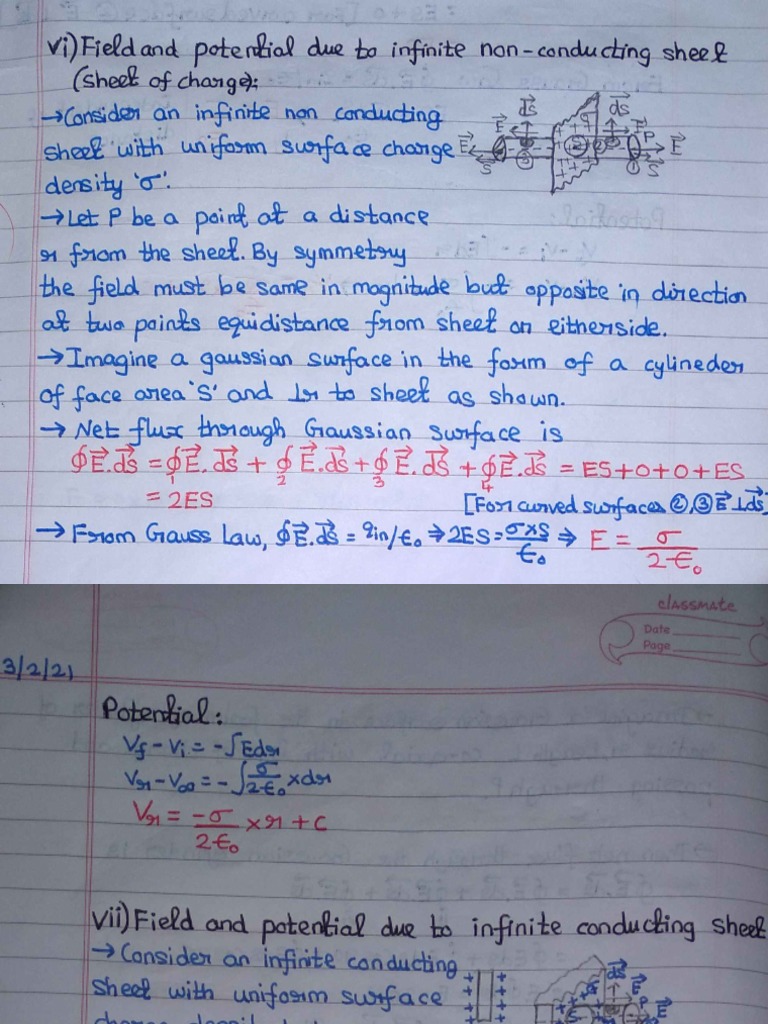 vi) Field and potential due to infinite non-conducting sheet
(sheet of charge):
→ Consider an infinite non conducting
sheet with uniform surface charge
density 'σ'.
→ Let P be a point at a distance
r from the sheet. By symmetry
the field must be same in magnitude but opposite in direction
at two points equidistance from sheet on eitherside.
→ Imagine a gaussian surface in the form of a cylineder
of face area 'S' and ⊥r to sheet as shown.
→ Net flux through Gaussian surface is
∮E⃗.ds⃗ = ∮₁E⃗.ds⃗ + ∮₂E⃗.ds⃗ + ∮₃E⃗.ds⃗ + ∮₄E⃗.ds⃗ = ES+0+0+ES
= 2ES [For curved surfaces ②,③ E⃗ ⊥ ds⃗]
→ From Gauss Law, ∮E⃗.ds⃗ = qin/ε₀ ⇒ 2ES = σ×S/ε₀ ⇒ E = σ/2ε₀
ds⃗ ds⃗
E⃗ E⃗ P
E⃗ E⃗
S⃗ ③ ② ① S⃗
classmate
Date
Page
3/2/21
Potential:
Vf - Vi = -∫Edr
Vr - V∞ = -∫σ/2ε₀ × dr
Vr = -σ/2ε₀ × r + c
vii) Field and potential due to infinite conducting sheet
→ Consider an infinite conducting
sheet with uniform surface
ds⃗
E⃗ P E⃗